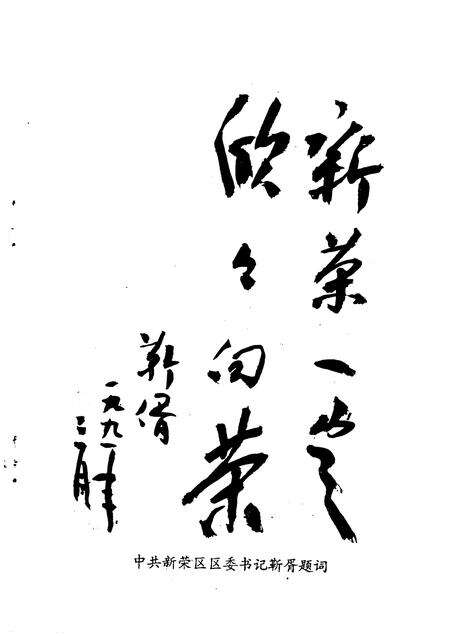 新荣一定
欣々向荣
靳胥
一九九一年
三月
中共新荣区区委书记靳胥题词